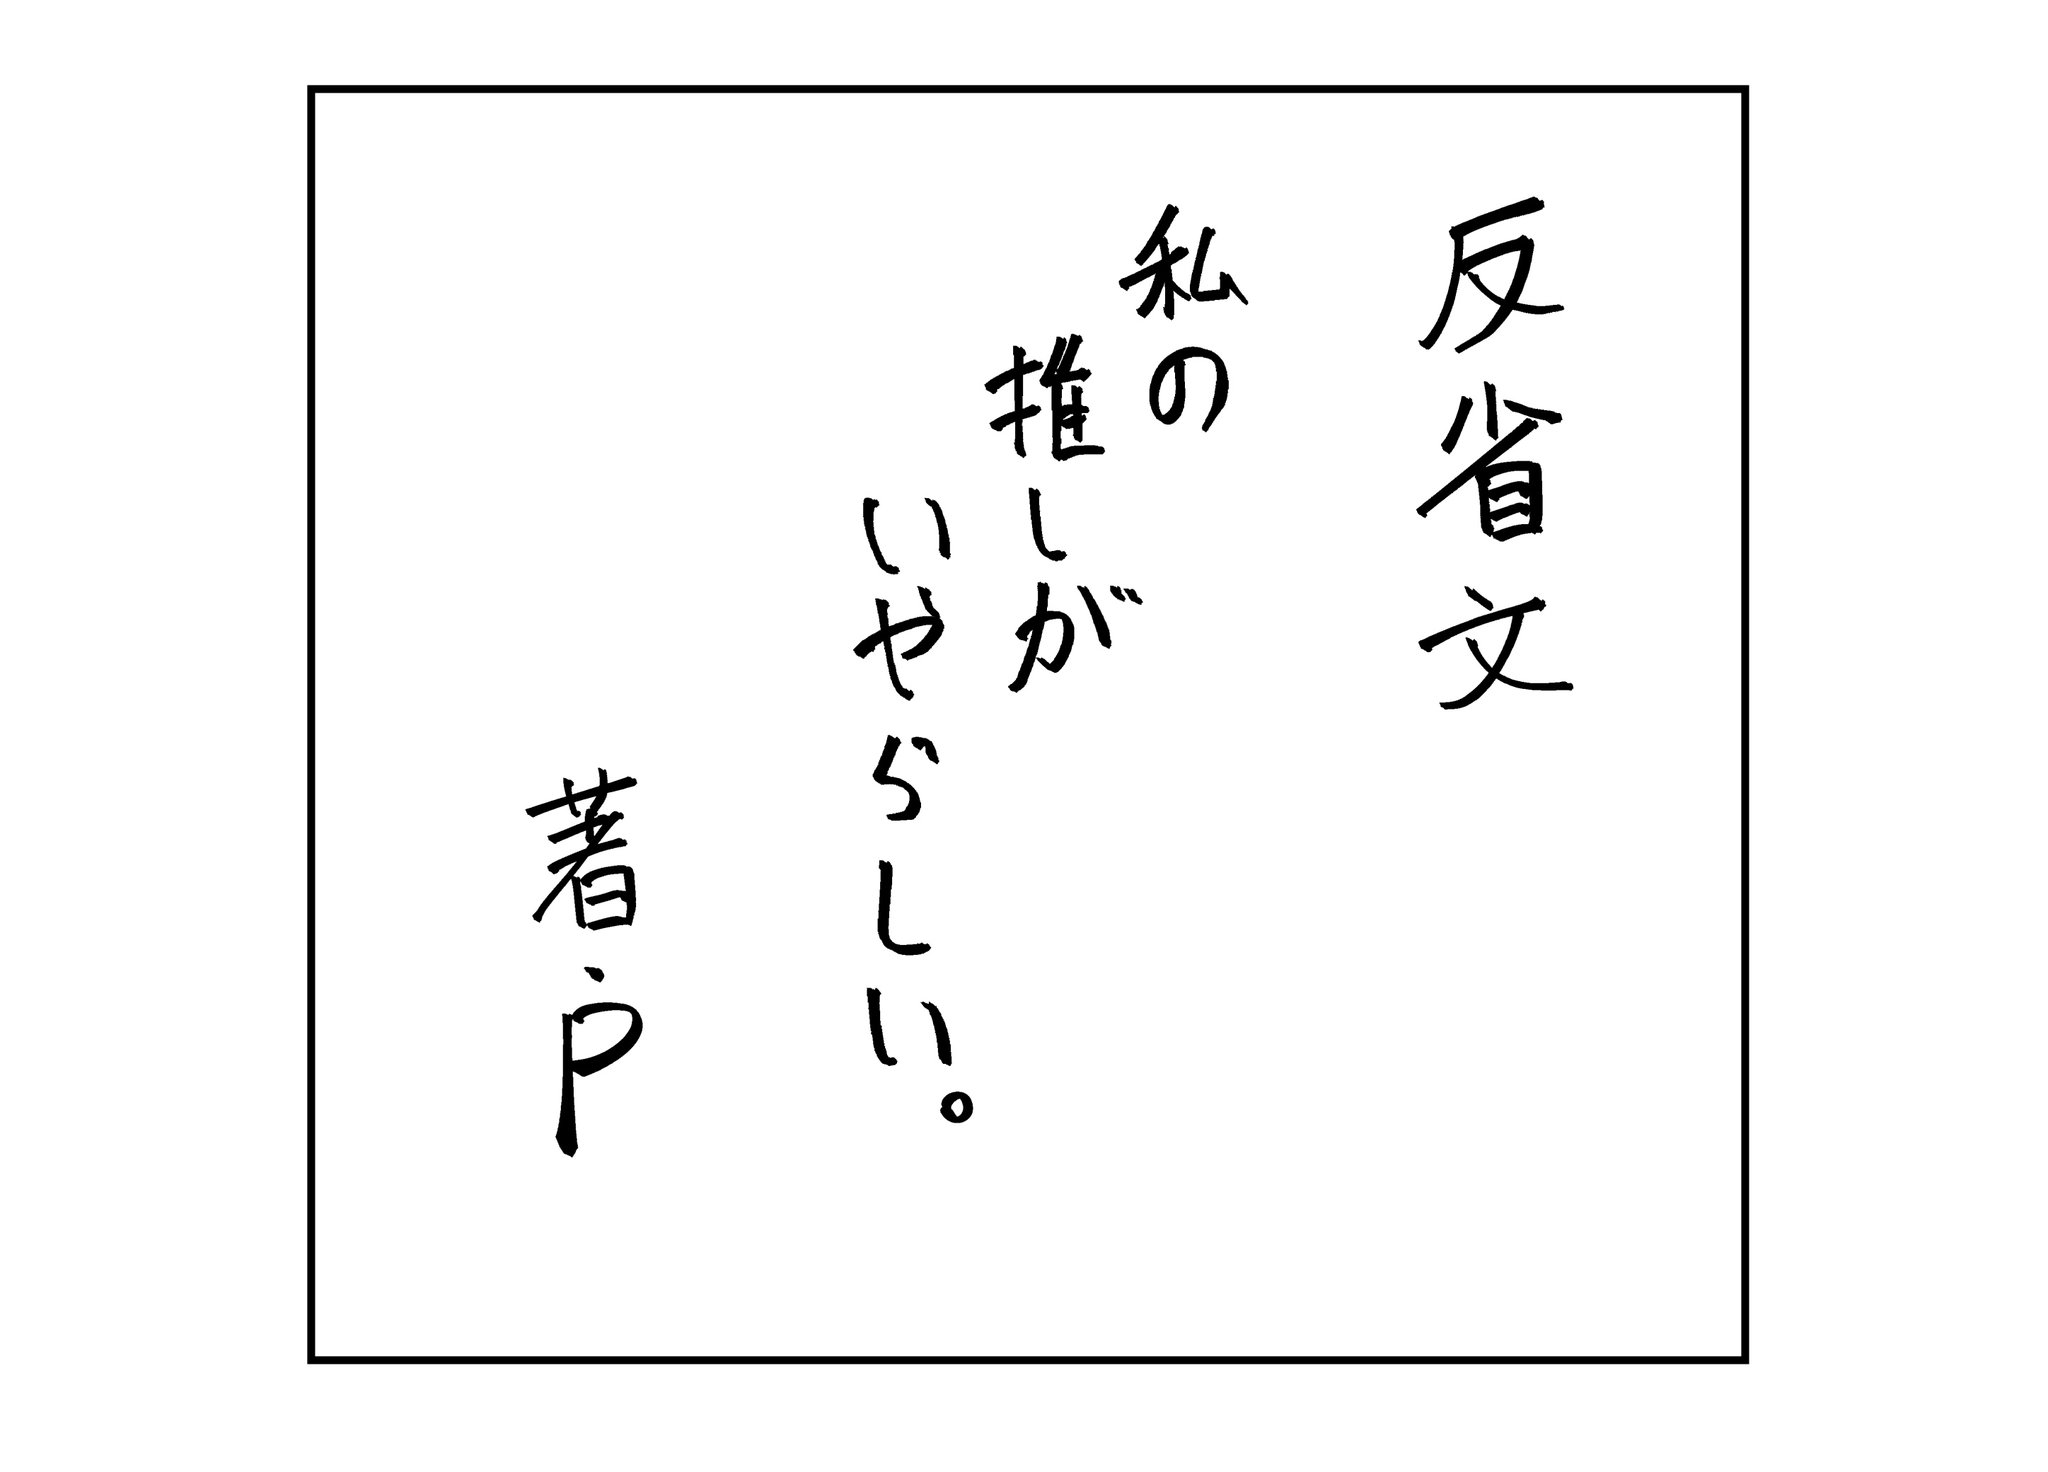 反省文
私の
推しが
いやらしい。
著・P